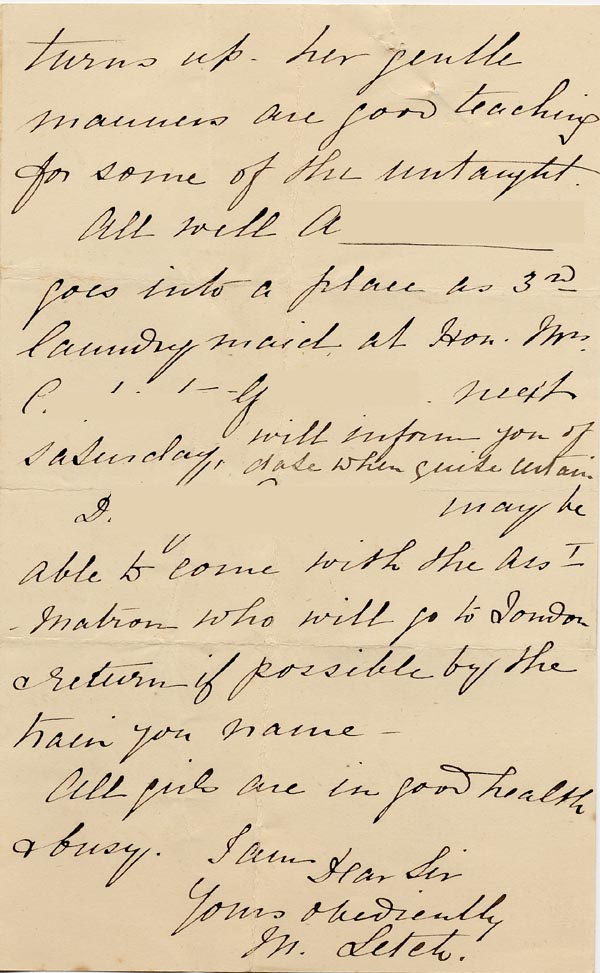 turns up - her gentle
manners are good teaching
for some of the untaught.
All well A
goes into a place as 3rd
laundrymaid at Hon. Mrs
C. next
saturday, will inform you of
date when quite certain
D. may be
able to come with the Asst
Matron who will go to London
& return if possible by the
train you name -
All girls are in good health
& busy. I am
Dear Sir
Yours obediently
M. Letch.